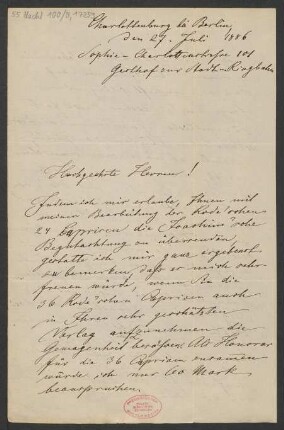 Charlottenburg bei Berlin,
den 27. Juli 1886
Sophie-Charlottenstrasse 101
Gasthof zur Stadt-Ringbahn
Hochgeehrte Herren!
Indem ich mir erlaube, Ihnen mit
meiner Bearbeitung der Rode'schen
24 Capricen die Joachim'sche
Begutachtung zu übersenden,
gestatte ich mir ganz ergebenst
zu bemerken, daß es mich sehr
freuen würde, wenn Sie die
36 Capricen auch
in Ihren sehr geschätzten
Verlag aufzunehmen die
Gewogenheit besäßen. Als Honorar
für die 36 Capricen zusammen
würde ich nur 60 Mark
beanspruchen.